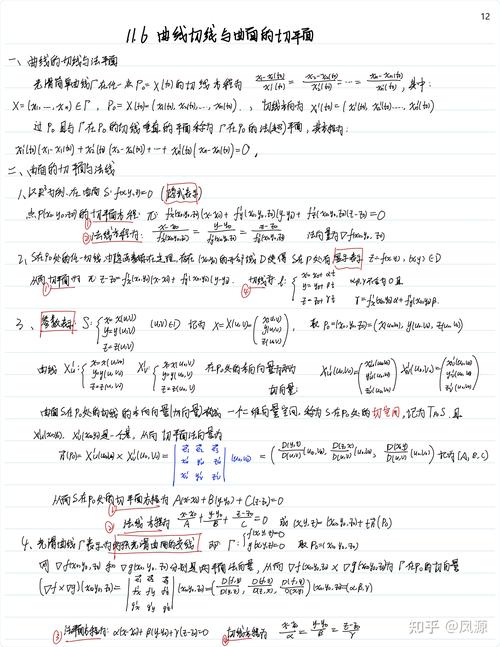 12
11.6 曲线切线与曲面的切平面
一、曲线的切线与法平面
光滑简单曲线Γ在任一点P₀=X(t₀)的切线方程为 (x₁-x₁(t₀))/x₁'(t₀) = (x₂-x₂(t₀))/x₂'(t₀) = … = (xₙ-xₙ(t₀))/xₙ'(t₀), 其中:
X=(x₁,…,xₙ)∈Γ, P₀=X(t₀)=(x₁(t₀), x₂(t₀),…,xₙ(t₀)), 切线方向为 X'(t₀)=(x₁'(t₀), x₂'(t₀),…xₙ'(t₀))
过P₀且与Γ在P₀的切线垂直的平面称为Γ在P₀的法(超)平面, 其方程为:
x₁'(t₀)(x₁-x₁(t₀))+x₂'(t₀)(x₂-x₂(t₀))+…+xₙ'(t₀)(xₙ-xₙ(t₀))=0.
二、曲面的切平面与法线
1、以R³为例, 在曲面S: f(x,y,z)=0 (隐式表示)
点P(x₀,y₀,z₀)的切平面方程: π fx'(x₀,y₀,z₀)(x-x₀)+fy'(x₀,y₀,z₀)(y-y₀)+fz'(x₀,y₀,z₀)(z-z₀)=0
②法线方程为: (x-x₀)/fx'(x₀,y₀,z₀) = (y-y₀)/fy'(x₀,y₀,z₀) = (z-z₀)/fz'(x₀,y₀,z₀) 法向量为∇f(x₀,y₀,z₀)
2、S在P₀处的任一切线 在(x₀,y₀)的 D使得S在P处有显示表示 z=f(x,y), (x,y)∈D
从而切平面为 π z-z₀=fx'(x₀,y₀)(x-x₀)+fy'(x₀,y₀)(y-y₀). 切线为 ℓ: { x=x₀+αt
y=y₀+βt α,β不全为0且
z=z₀+γt γ=fx'(x₀,y₀)α+fy'(x₀,y₀)β.
3、参数表示: S: { x=x(u,v) y=y(u,v) z=z(u,v) (u,v)∈D 记为 X=X(u,v)=(x(u,v) y(u,v) z(u,v)), 取P₀=(x₀,y₀,z₀)=(x(u₀,v₀), y(u₀,v₀), z(u₀,v₀))
曲线 { x=x(u,v₀) y=y(u,v₀) z=z(u,v₀) { x=x(u₀,v) y=y(u₀,v) z=z(u₀,v) 在P₀处的方向向量为 切向量:
曲面S在P₀处的切线的方向向量(切向量)构成一个二维向量空间. 称为S在P₀处的切空间, 记为TP₀S. 且
Xu'(u₀,v₀), Xv'(u₀,v₀)是一个基, 从而切平面法向量为
n(P₀)=Xu'(u₀,v₀)×Xv'(u₀,v₀)= | e₁ e₂ e₃ xu' yu' zu' xv' yv' zv' |(u₀,v₀) = (D(y,z)/D(u,v)(u₀,v₀), D(z,x)/D(u,v)(u₀,v₀), D(x,y)/D(u,v)(u₀,v₀)) 记为(A,B,C)
从而S在P₀处的切平面方程为 A(x-x₀)+B(y-y₀)+C(z-z₀)=0
② 法线方程为 (x-x₀)/A = (y-y₀)/B = (z-z₀)/C 或 (x,y,z)=(x₀,y₀,z₀)+tn(P₀)
4、光滑曲线Γ表示为两张光滑曲面的交线 即 Γ: { f(x,y,z)=0 g(x,y,z)=0 取P₀=(x₀,y₀,z₀)
则 ∇f(x₀,y₀,z₀) 和 ∇g(x₀,y₀,z₀)分别是两平面法向量, 从而∇f(x₀,y₀,z₀)×∇g(x₀,y₀,z₀)为Γ在P₀的切向量
(∇f×∇g)(x₀,y₀,z₀)= | e₁ e₂ e₃ fx' fy' fz' gx' gy' gz' |(x₀,y₀,z₀)=(D(f,g)/D(y,z), D(f,g)/D(z,x), D(f,g)/D(x,y))(x₀,y₀,z₀)=(α,β,γ)
③ 法平面方程为: α(x-x₀)+β(y-y₀)+γ(z-z₀)=0 切线方程为 (x-x₀)/α = (y-y₀)/β = (z-z₀)/γ
知乎 @凤源